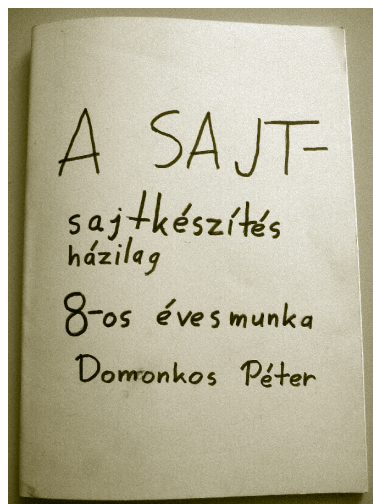 A SAJT-
sajtkészítés
házilag
8-os éves munka
Domonkos Péter